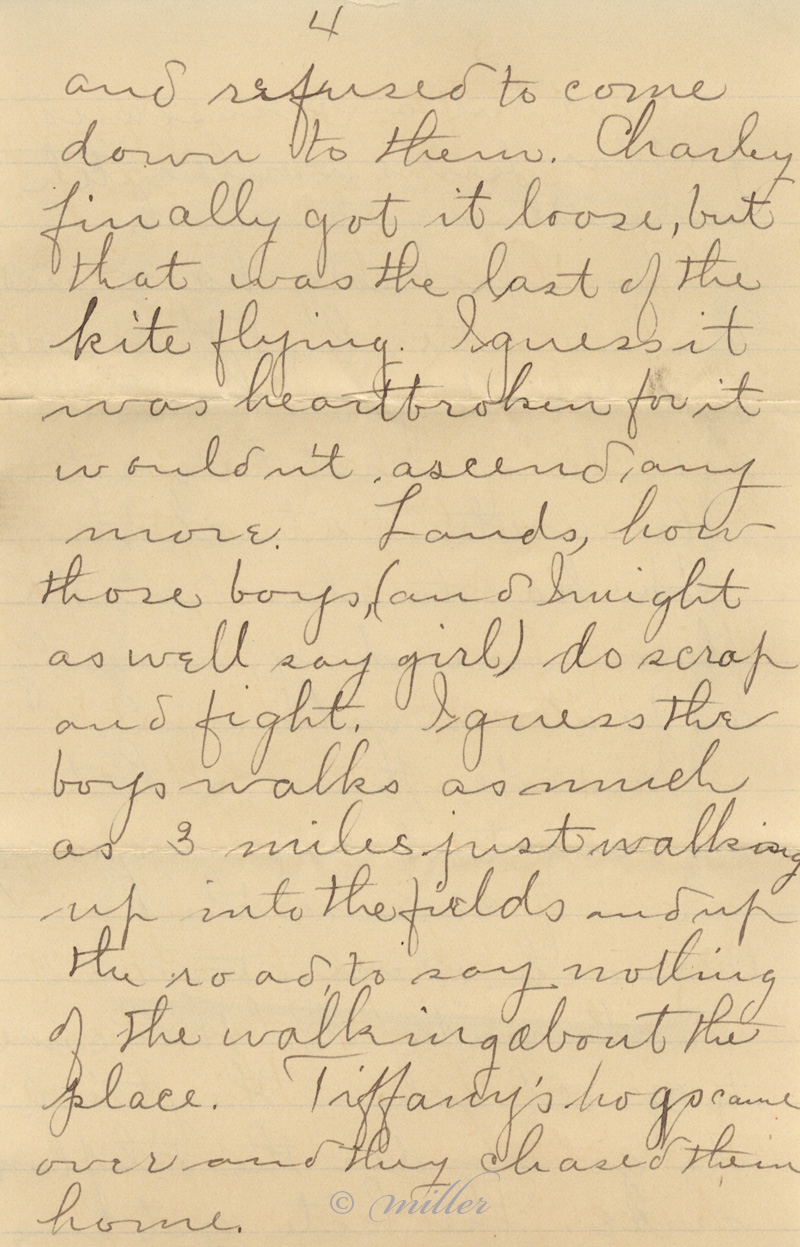 4
and refused to come
down to them. Charley
finally got it loose, but
that was the last of the
kite flying. I guess it
was heartbroken for it
wouldn't ascend, any
more. Lands, how
those boys, (and I might
as well say girl) do scrap
and fight. I guess the
boys walks as much
as 3 miles just walking
up into the fields and up
the road, to say nothing
of the walking about the
place. Tiffany's hogs came
over and they chased them
home.
© miller